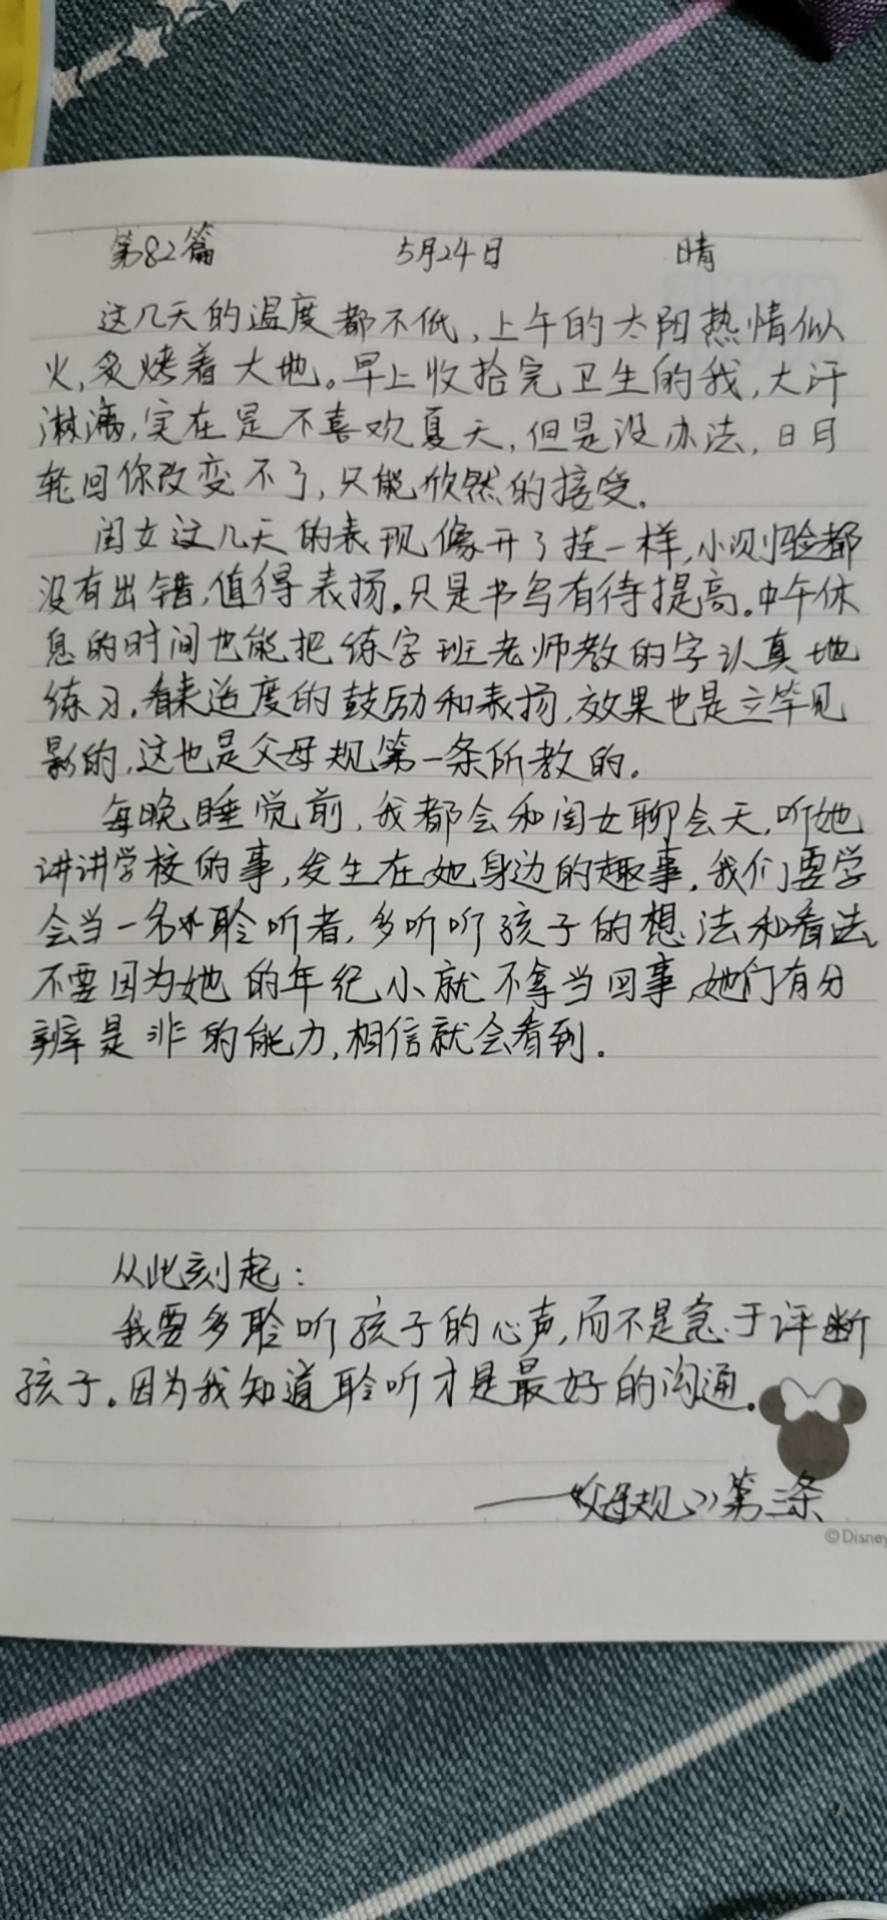 第82篇 5月24日 晴
这几天的温度都不低,上午的太阳热情似
火,炙烤着大地。早上收拾完卫生的我,大汗
淋漓,实在是不喜欢夏天,但是没办法,日月
轮回你改变不了,只能欣然的接受.
闺女这几天的表现像开了挂一样,小测验都
没有出错,值得表扬.只是书写有待提高.中午休
息的时间也能把练字班老师教的字认真地
练习.看来适度的鼓励和表扬,效果也是立竿见
影的,这也是父母规第一条所教的.
每晚睡觉前,我都会和闺女聊会天,听她
讲讲学校的事,发生在她身边的趣事.我们要学
会当一名聆听者,多听听孩子的想法和看法,
不要因为她的年纪小就不拿当回事,她们有分
辨是非的能力,相信就会看到.
从此刻起:
我要多聆听孩子的心声,而不是急于评断
孩子.因为我知道聆听才是最好的沟通.
——《父母规》第三条
©Disney